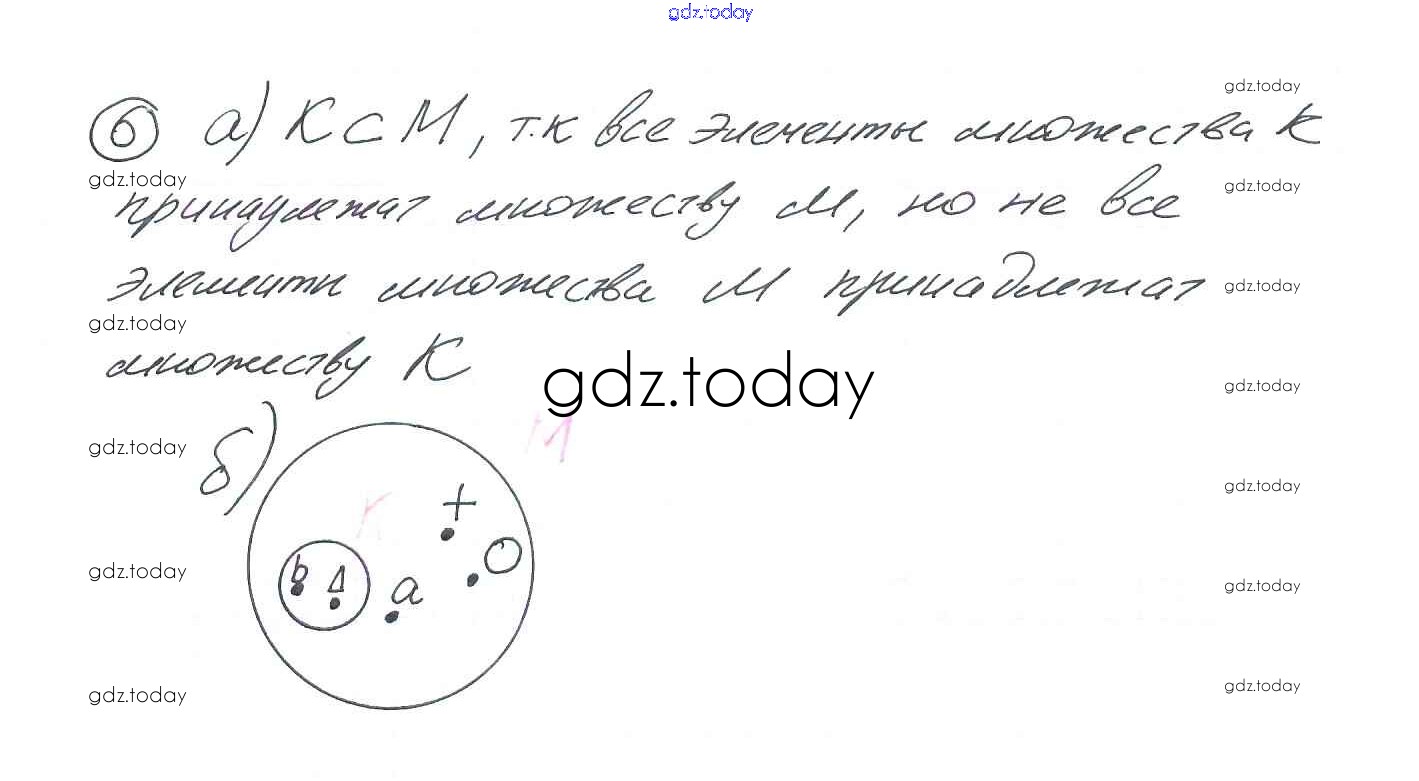 gdz.today
gdz.today
6 а) К ⊂ М, т.к все элементы множества К
gdz.today
gdz.today
принадлежат множеству М, но не все
элементы множества М принадлежат
gdz.today
gdz.today
множеству К
gdz.today
gdz.today
М
б)
gdz.today
gdz.today
К
+
О
b Δ a
gdz.today
gdz.today
gdz.today
gdz.today